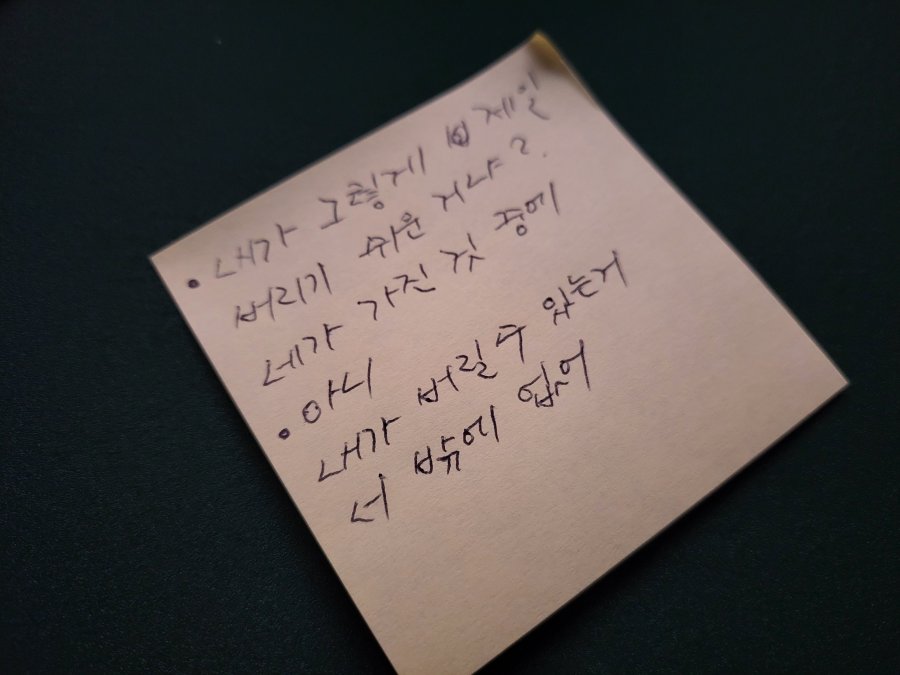 • 내가 그렇게 제일
버리기 쉬운 거냐?.
네가 가진 것 중에
• 아니
내가 버릴 수 있는게
너 밖에 없어